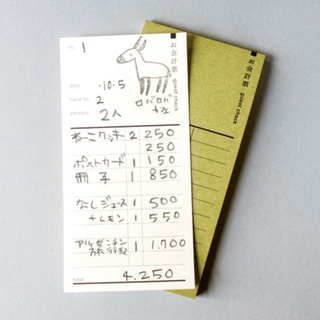 no. 1
お会計票 guest check
date ・10・5
table no. 2
persons 2人
ロバロバ
ねこクッキー 2 250
250
ポストカード 1 150
冊子 1 850
なしジュース 1 500
〃レモン 1 550
アルゼンチン 1 1,700
旅行記
total 4.250
お会計票 guest check